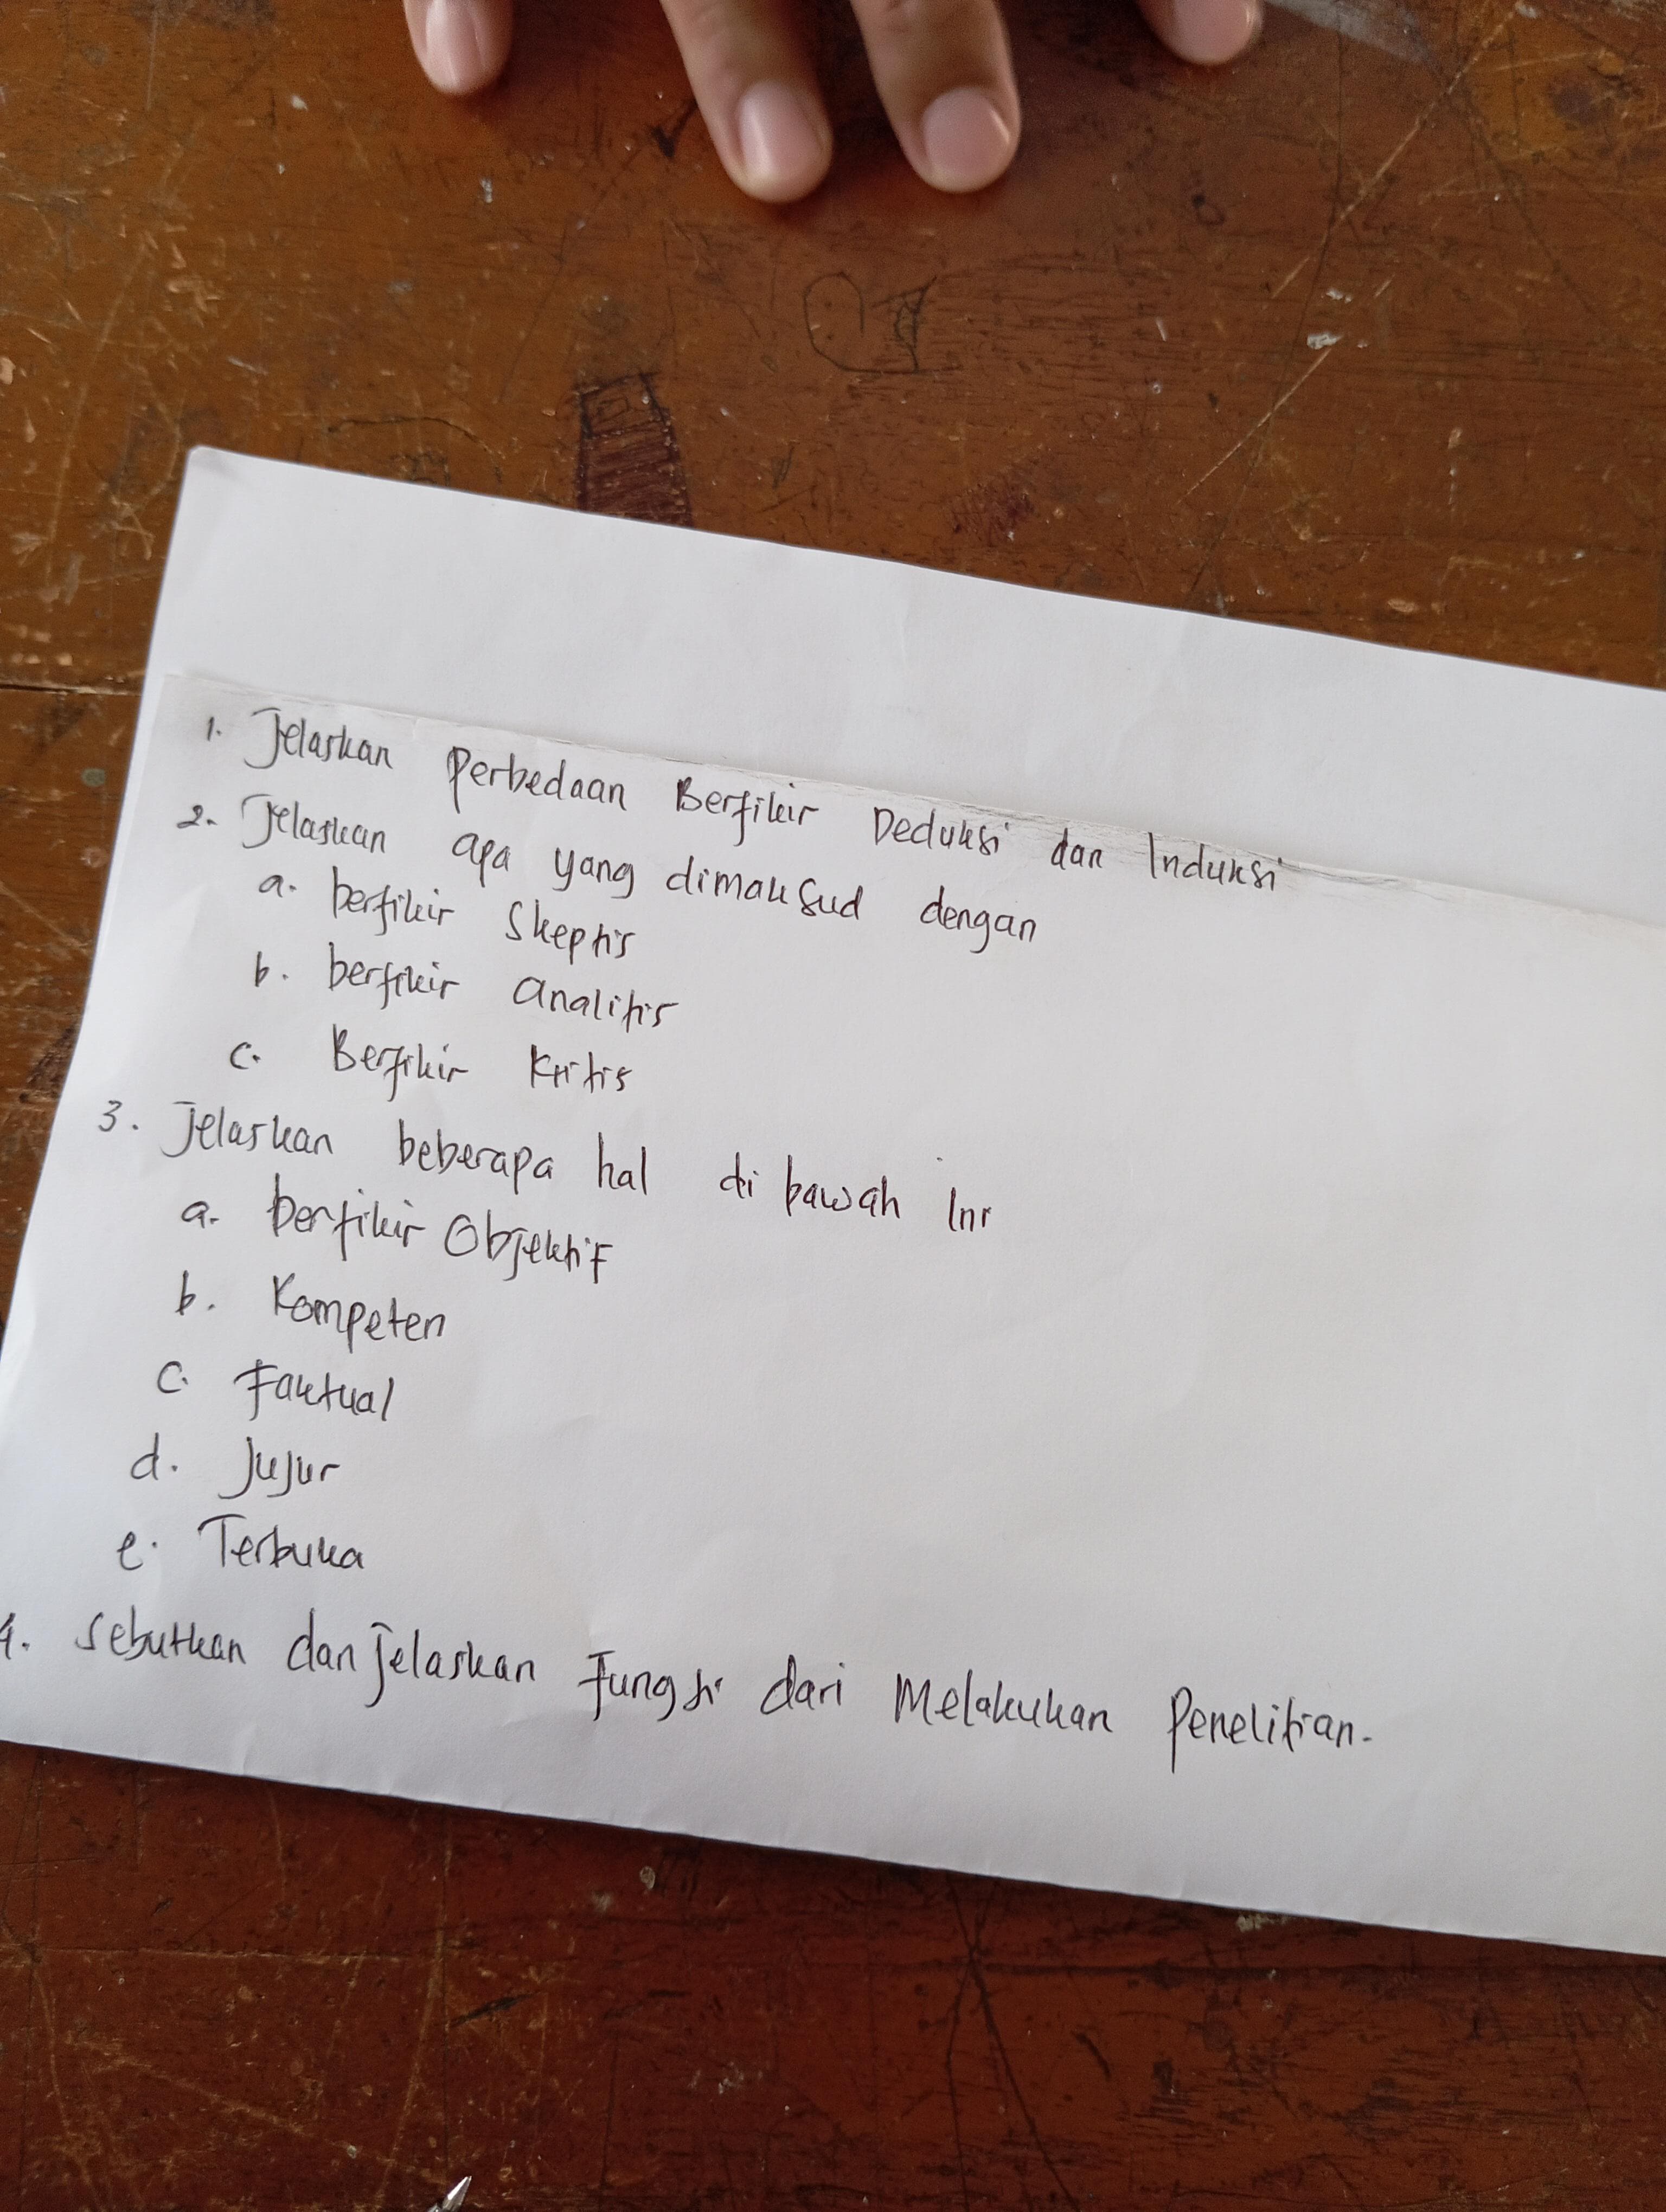 1. Jelaskan Perbedaan Berfikir Deduksi dan Induksi
2. Jelaskan apa yang dimaksud dengan
a. berfikir Skeptis
b. berfikir analitis
c. Berfikir Kritis
3. Jelaskan beberapa hal di bawah Ini
a. berfikir Objektif
b. Kompeten
c. Faktual
d. Jujur
e. Terbuka
4. Sebutkan dan jelaskan Fungsi dari Melakukan Penelitian.